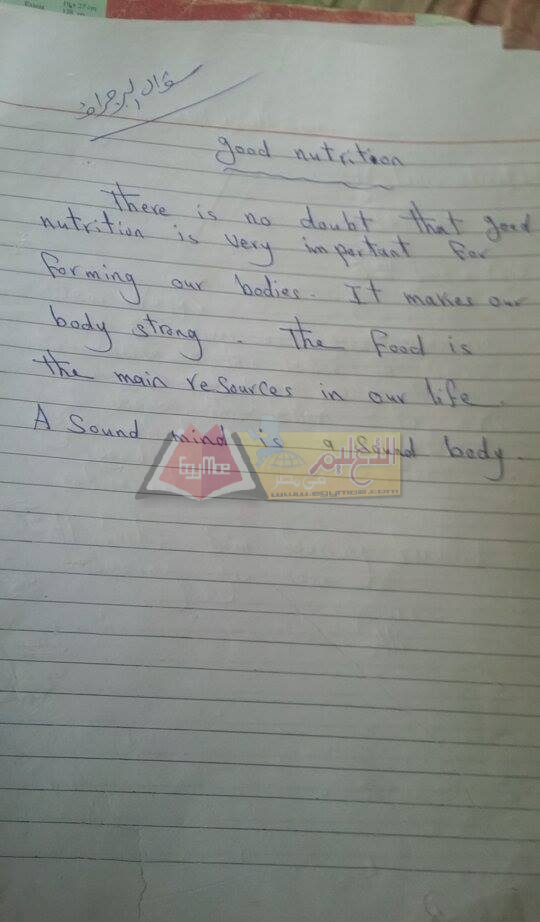 سؤال البرجراف
good nutrition
There is no doubt that good
nutrition is very important for
forming our bodies. It makes our
body strong. The food is
the main resources in our life.
A Sound mind is a sound body.
EgyMoe
التعليم
في مصر
www.egymoe.com